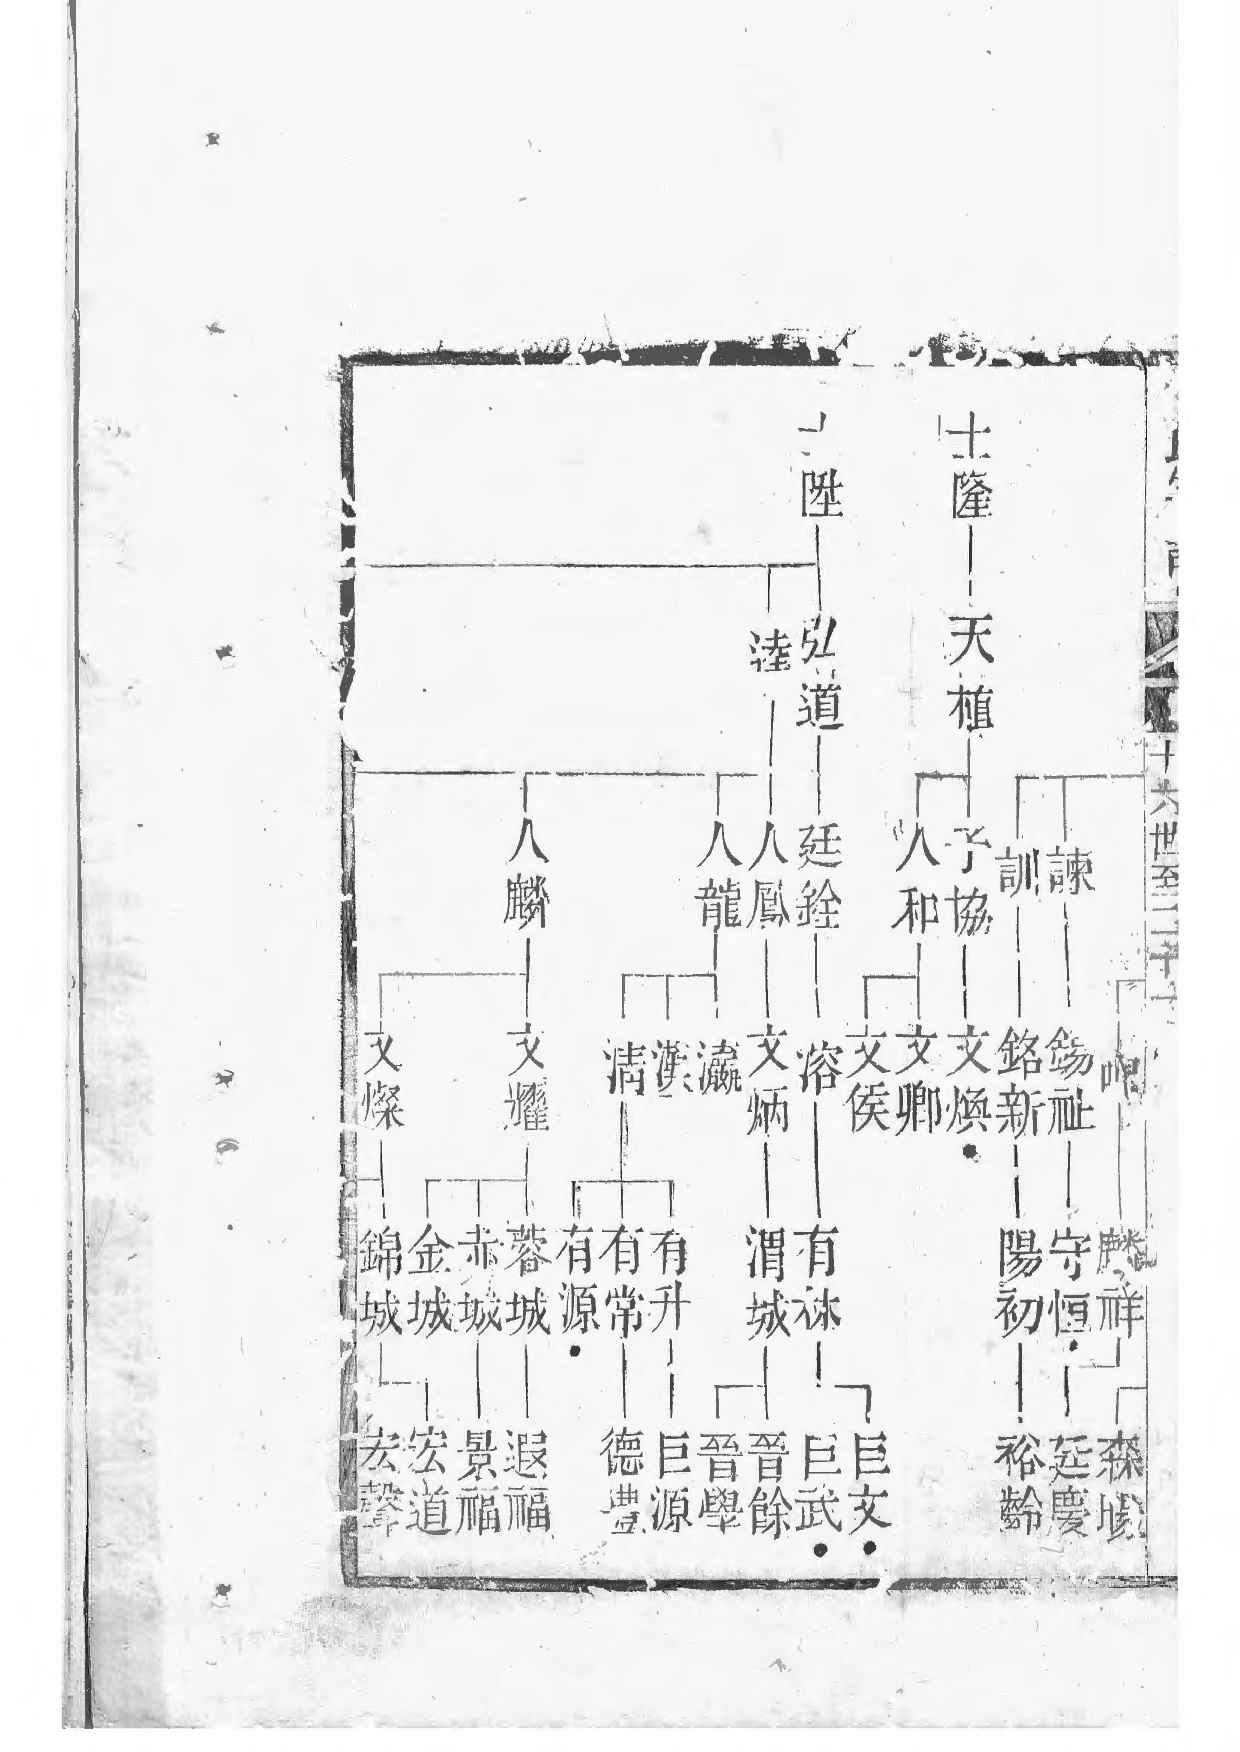 十六世至二十一
士隆
陞
天植
弘道
逵
諫
訓
子協
人和
廷銓
人鳳
人龍
人麟
錫祉
銘新
文煥
文卿
文侯
溶
文炳
瀛
漢
清
文耀
文燦
麟祥
守恒
陽初
有秝
渭城
有升
有常
有源
蓉城
赤城
金城
錦城
森
廷慶
裕齡
巨文
巨武
晉餘
晉舉
巨源
德豐
遐福
景福
宏道
宏聲